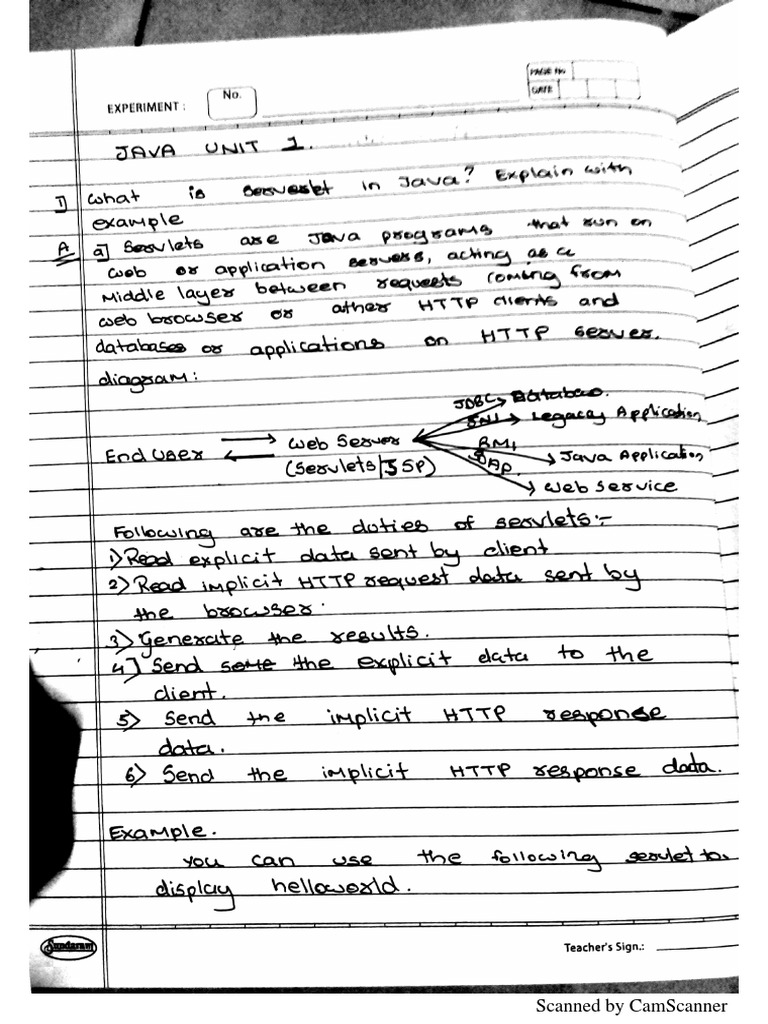 EXPERIMENT :
No.
PAGE No
DATE
JAVA UNIT 1.
1] What is serverlet in Java? Explain with
example
A a] Servlets are Java programs that run on
web or application servers, acting as a
Middle layer between requests coming from
web browser or other HTTP clients and
databases or applications on HTTP server.
diagram:
JDBC Database.
JNI Legacy Application
End User Web Server RMI
Java Application
(Servlets/JSP) SOAP.
Web Service
Following are the duties of servlets:-
1) Read explicit data sent by client
2) Read implicit HTTP request data sent by
the browser.
3) Generate the results.
4] Send some the explicit data to the
client.
5) Send the implicit HTTP response
data.
6) Send the implicit HTTP response data.
Example.
You can use the following servlet to
display helloworld.
Sundaram
Teacher's Sign.:
Scanned by CamScanner